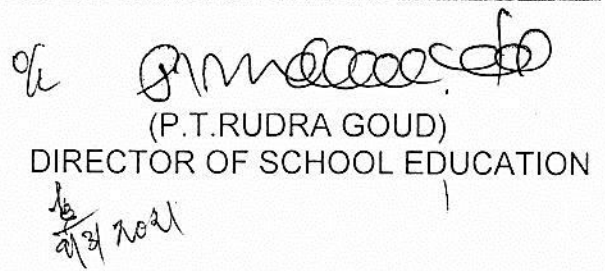 o/c
(P.T.RUDRA GOUD)
DIRECTOR OF SCHOOL EDUCATION
2021